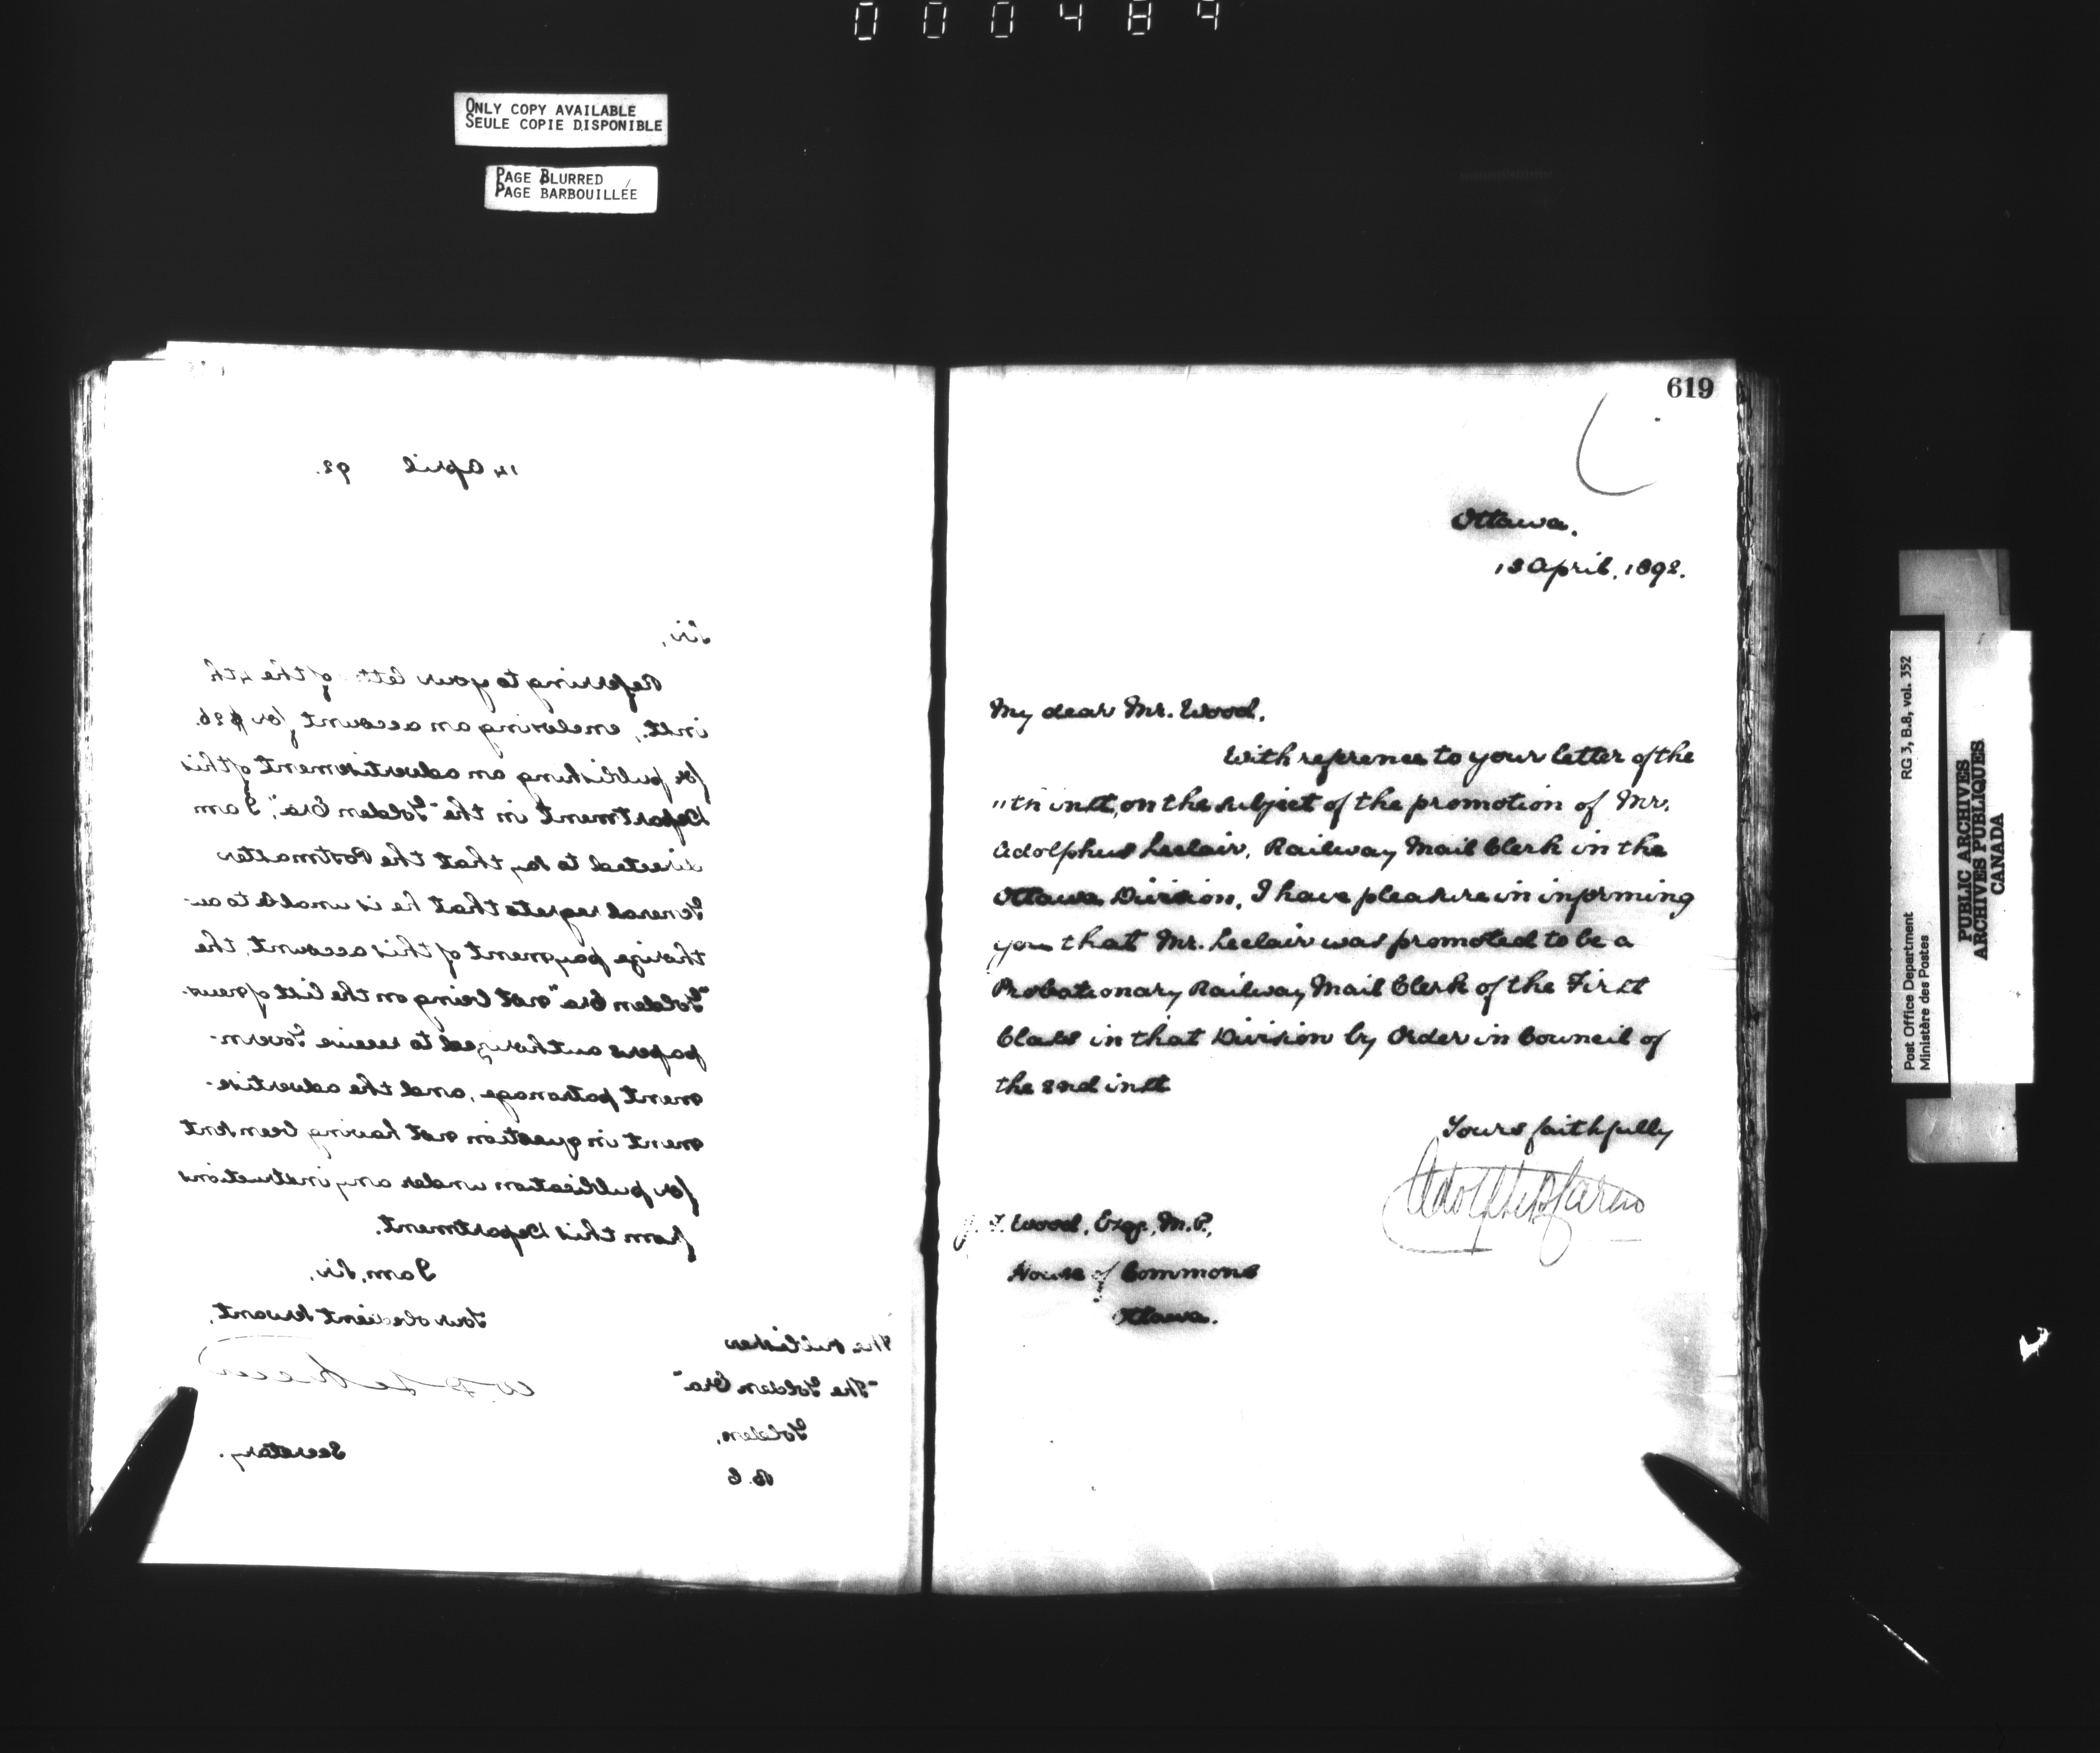 000489
ONLY COPY AVAILABLE
SEULE COPIE DISPONIBLE
PAGE BLURRED
PAGE BARBOUILLÉE
14 April 92.
Sir,
Referring to your letter of the 4th
inst., enclosing an account for $26.
for publishing an advertisement of this
Department in the "Golden Era", I am
directed to say that the Postmaster
General regrets that he is unable to au-
thorize payment of this account, the
"Golden Era" not being on the list of news-
papers authorized to receive Govern-
ment patronage, and the advertise-
ment in question not having been sent
for publication under any instructions
from this Department.
I am, Sir,
Your obedient servant,
Secretary.
The Publisher
"The Golden Era"
Golden,
B.C
619
Ottawa.
13 April, 1892.
My dear Mr. Wood,
With reference to your letter of the
11th inst, on the subject of the promotion of Mr.
Adolphus Leclair, Railway Mail Clerk in the
Ottawa Division, I have pleasure in informing
you that Mr. Leclair was promoted to be a
Probationary Railway Mail Clerk of the First
Class in that Division by Order in Council of
the 2nd inst
Yours faithfully
Adolphe P. Caron
J. F. Wood, Esqr, M.P.,
House of Commons
Ottawa.
Post Office Department RG 3, B.8, vol. 352
Ministère des Postes
PUBLIC ARCHIVES
ARCHIVES PUBLIQUES
CANADA